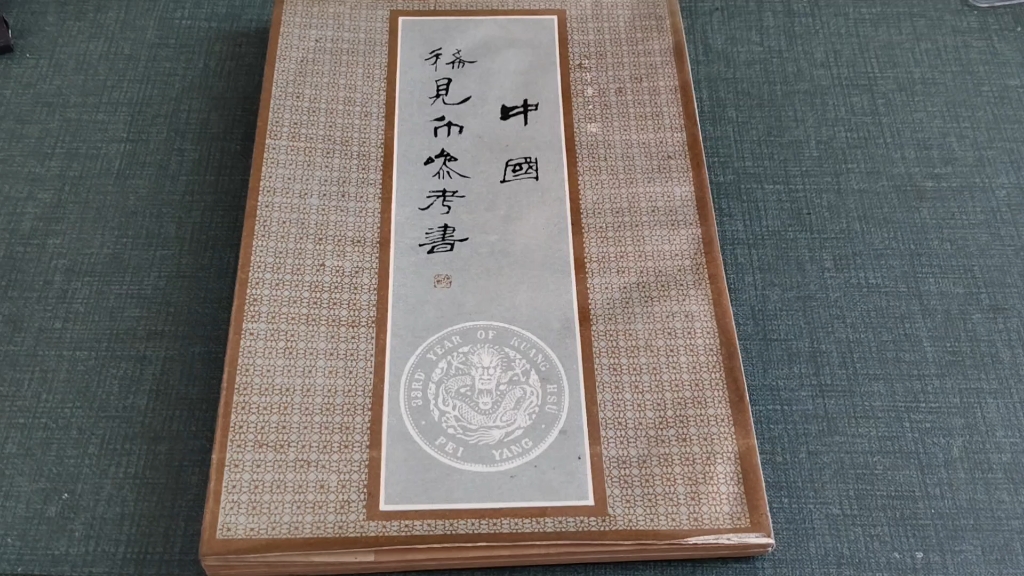 中國
稀見币參考書
33RD YEAR OF KUANG HSU
PEI YANG